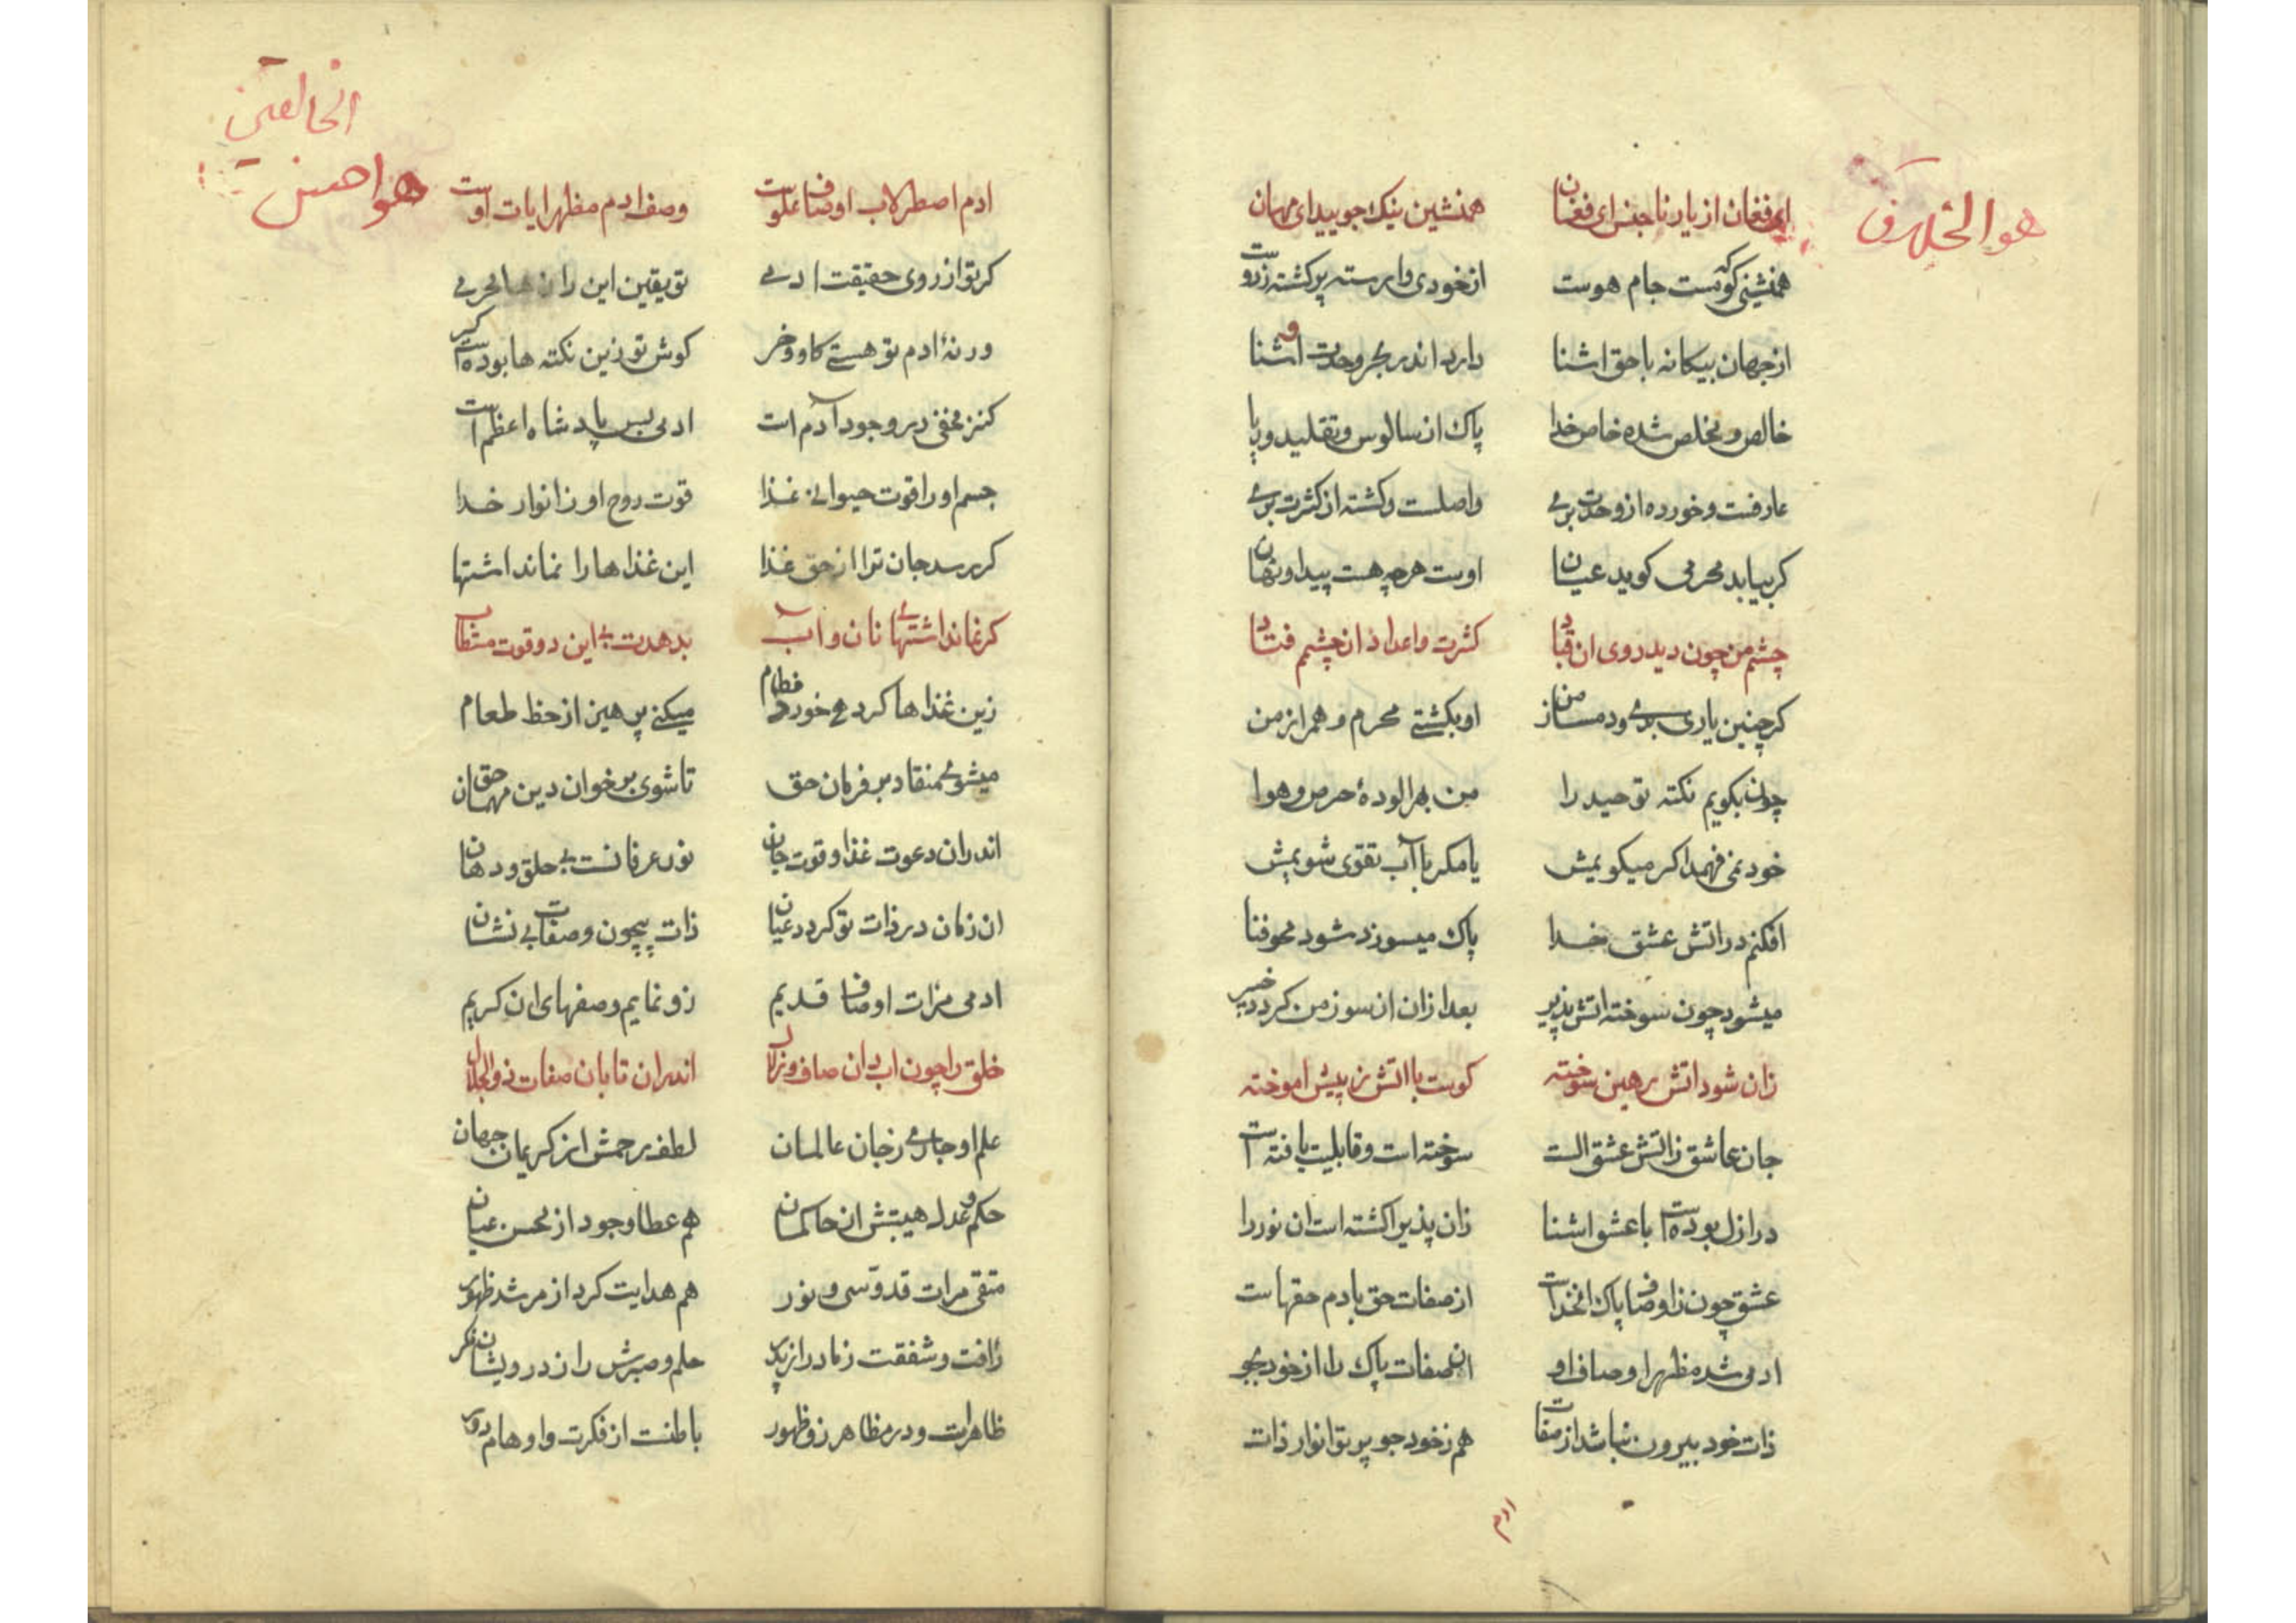 ای فغان از یار ناجنس ای فغان همنشین نیک جویید ای مهان
همنشینی کو که مست جام هوست از خودی وارسته پر کشته زدوست
از جهان بیکانه با حق اشنا دارد اندر بحر وحدت اشنا
خالص و مخلص شده خاص خدا پاک از سالوس و تقلید و ریا
عارفست و خورده از وحدت بری واصلست و کشته از کثرت بری
کر بیابد محرمی کوید عیان اوست هرچه هست پیدا و نهان
چشم من چون دید روی ان قباد کثرت و اعداد از چشم فتاد
کر چنین یاری بدی و دمساز من او بکشتی محرم و همراز من
چون بکویم نکته توحید را من بهر الودهٔ حرص و هوا
خود نمی فهمد اکر میکویمش یا مکر با آب تقوی شویمش
افکنم در اتش عشق خدا پاک میسوزد شود محو فنا
میشود چون سوخته اتش پذیر بعد ازان ان سوز من کردد خبیر
زان شود اتش رهین سوخته کوست با اتش ز پیش اموخته
جان عاشق ز اتش عشق الست سوخته است و قابلیت یافته است
در ازل بوده است با عشق اشنا زان پذیرا کشته است ان نور را
عشق چون ز اوصاف پاک ان خداست از صفات حق بادم حقهاست
ادمی شد مظهر اوصاف او ان صفات پاک را از خود بجو
ذات خود بیرون نباشد از صفات هم ز خود جو پرتو انوار ذات
ادم
ادم اصطرلاب اوصاف علوست وصف ادم مظهر ایات اوست
کر تو از روی حقیقت ادمی تو یقین این راز ها محرمی
ور نهٔ ادم تو هستی کاو و خر کوش تو زین نکته ها بوده است کر
کنز مخفی در وجود آدم است ادمی بس پادشاه اعظم است
جسم او را قوت حیوانی غذا قوت روح او ز انوار خدا
کر رسد جان ترا از حق غذا این غذاها را نماند اشتها
کر نماند اشتهای نان و آب بدهدت بی این دو قوت مستطاب
زین غذاها کردمی خود را فطام میکنی پرهیز از حظ طعام
میشوی منقاد بر فرمان حق تا شوی بر خوان دین مهمان حق
اندران دعوت غذا و قوت جان نور عرفانست بی حلق و دهان
ان زمان در ذات تو کردد عیان ذات بیچون و صفات بی نشان
ادمی مرات اوصاف قدیم زو نمایم وصفهای ان کریم
خلق را چون اب دان صاف و زلال اندران تابان صفات ذوالجلال
علم او جاری ز جان عالمان لطف و رحمش از کریمان جهان
حکم و عدل هیبتش از حاکمان هم عطا و جود از محسن عیان
متقی مرات قدوسی و نور هم هدایت کرد از مرشد ظهور
رافت و شفقت ز مادر از پدر حلم و صبرش را ز درویشان نکر
ظاهرست و در مظاهر زو ظهور باطنست از فکرت و اوهام دور
هو احسن
الخالقین